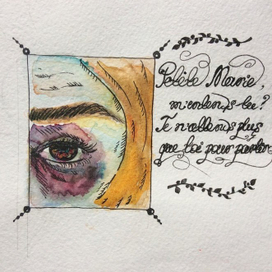 Petite Marie,
m'entends-tu ?
Je n'attends plus
que toi pour partir